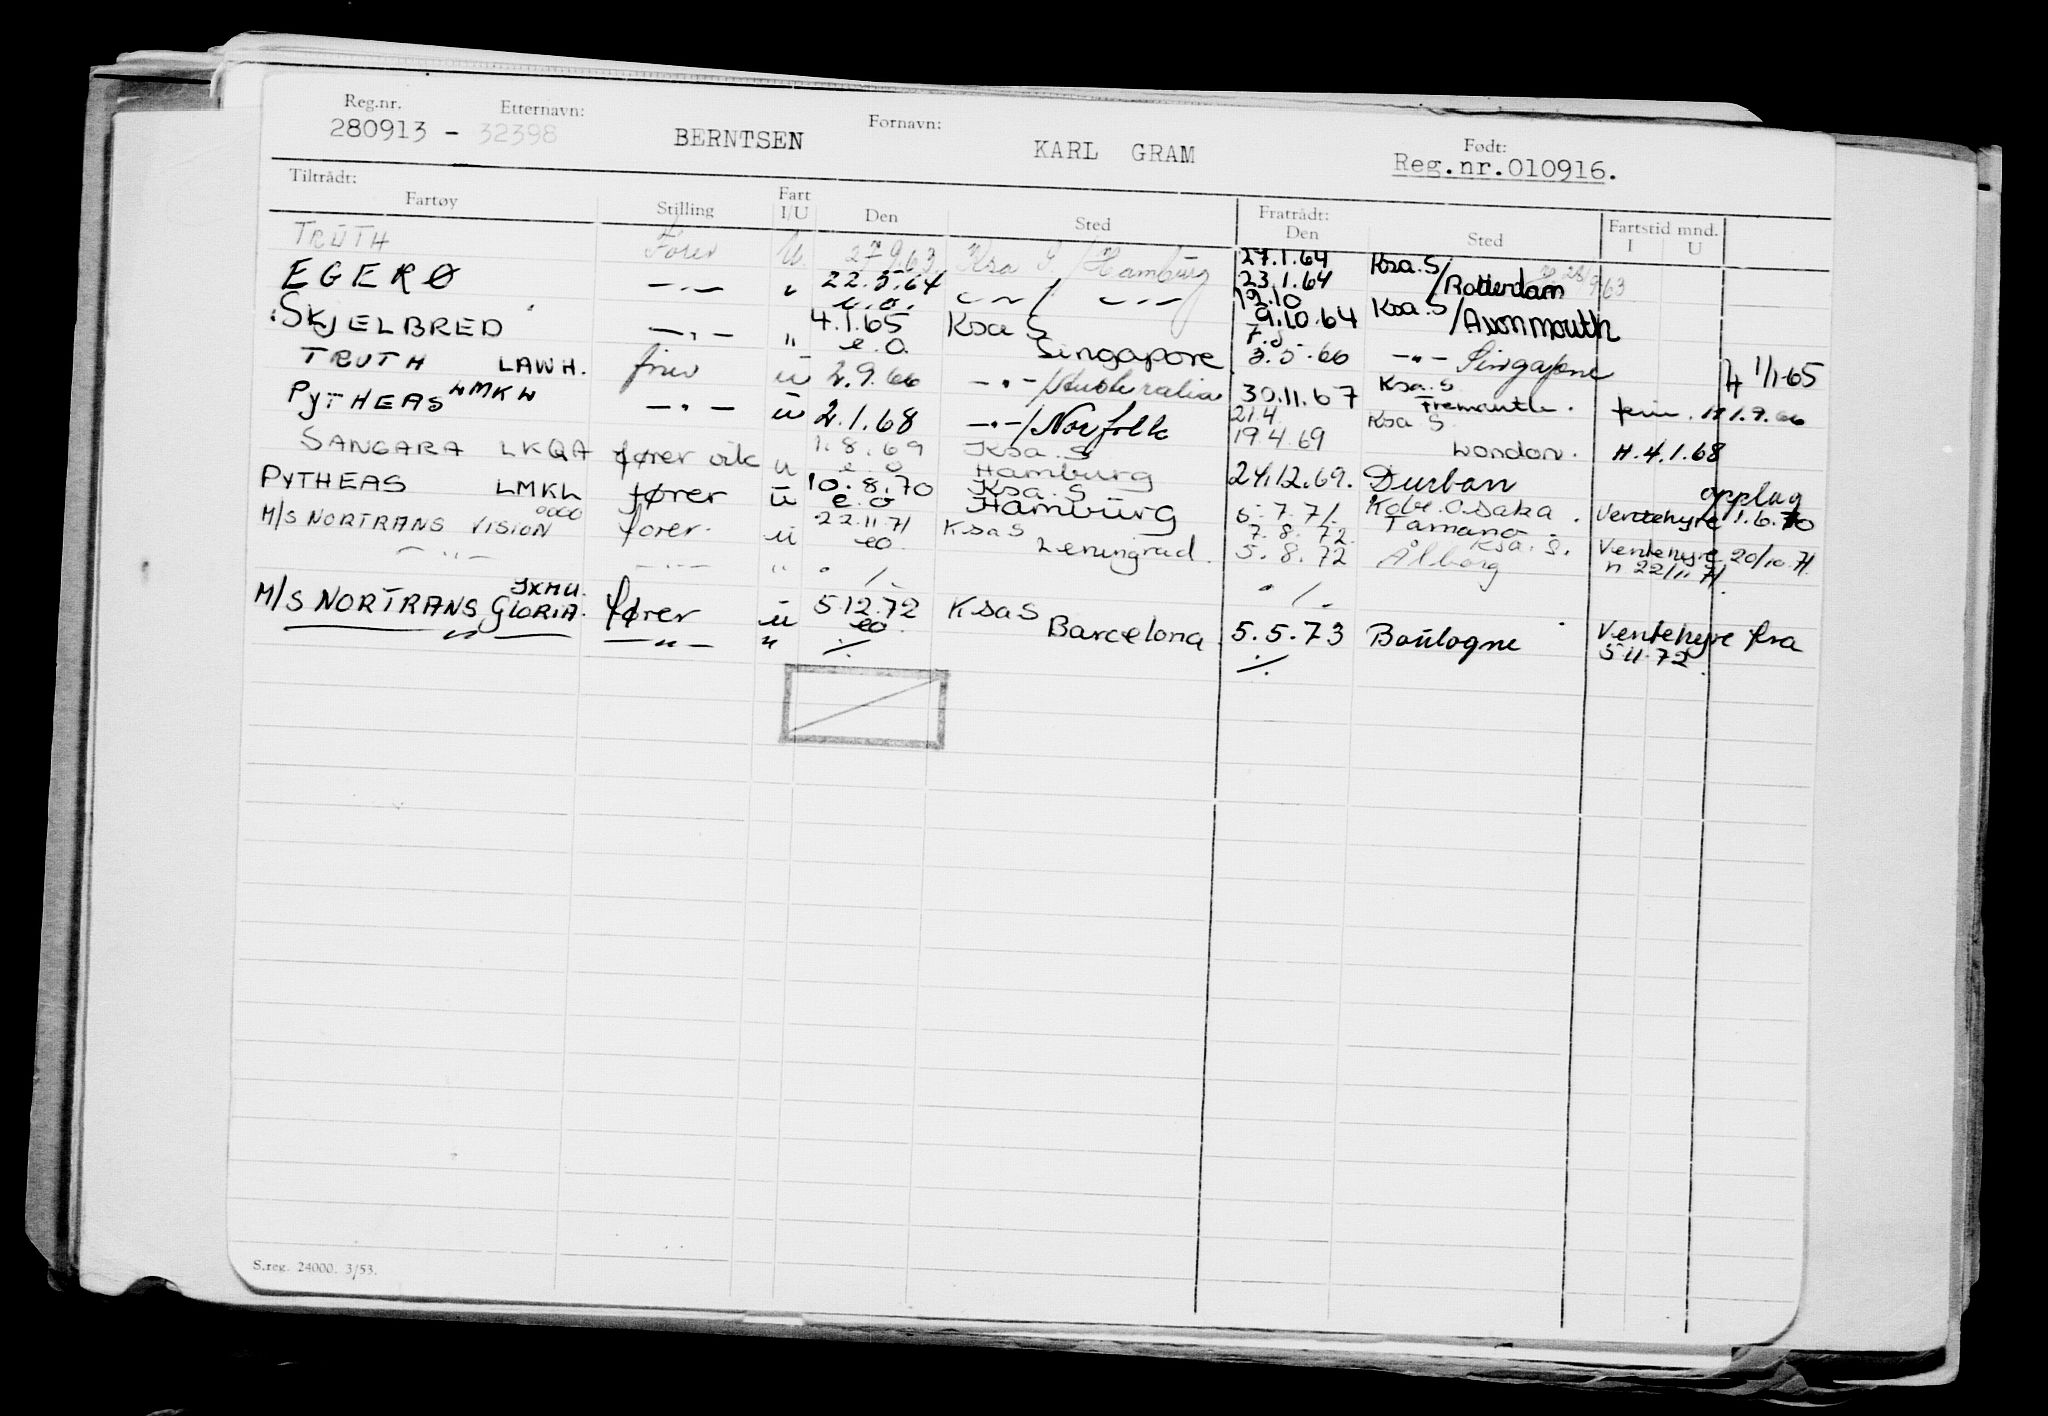 Reg.nr. Etternavn: Fornavn: Født:
280913 - 32398 BERNTSEN KARL GRAM Reg.nr.010916.
Tiltrådt: Fratrådt: Fartstid mnd.
Fartøy Stilling Fart I/U Den Sted Den Sted I U
TRUTH Fører U. 27.9.63 Ksa S/Hamburg 27.1.64 Ksa.S
23.1.64 /Rotterdam
EGERØ —"— " 22.5.64 —"—/ —"— 12.10 Ksa.S
9.10.64 /Avonmouth
SKJELBRED —"— " 4.1.65 Ksa S 7.5
e.o. Singapore 3.5.66 —"— Singapore 1/1-65
TRUTH LAWH. fører u 2.9.66 —"—/Australia 30.11.67 Ksa.S
Fremantle. 1.9.66
PYTHEAS LMKL —"— u 2.1.68 —"—/Norfolk 21.4 Ksa S
19.4.69 London. H.4.1.68
SANGARA LKQA fører vik u 1.8.69 Ksa.S
e.o Hamburg 24.12.69. Durban
PYTHEAS LMKL fører u 10.8.70 Ksa.S opplag
e.o Hamburg 5.7.71. Kobe.Osaka. Ventehyre 1.6.70
M/S NORTRANS VISION fører. u 22.11.71 Ksa S 7.8.72 Tamano.
eo. Leningrad. 5.8.72 Ksa.S. Ålborg Ventehyre 20/10.71.
—"— —"— " ./. ./. n 22/11 71.
JXMU.
M/S NORTRANS GLORIA. fører u 5.12.72 KsaS
eo. Barcelona 5.5.73 Boulogne Ventehyre fra
—"— —"— " ./. ./. 5.11.72.
S.reg. 24000. 3/53.